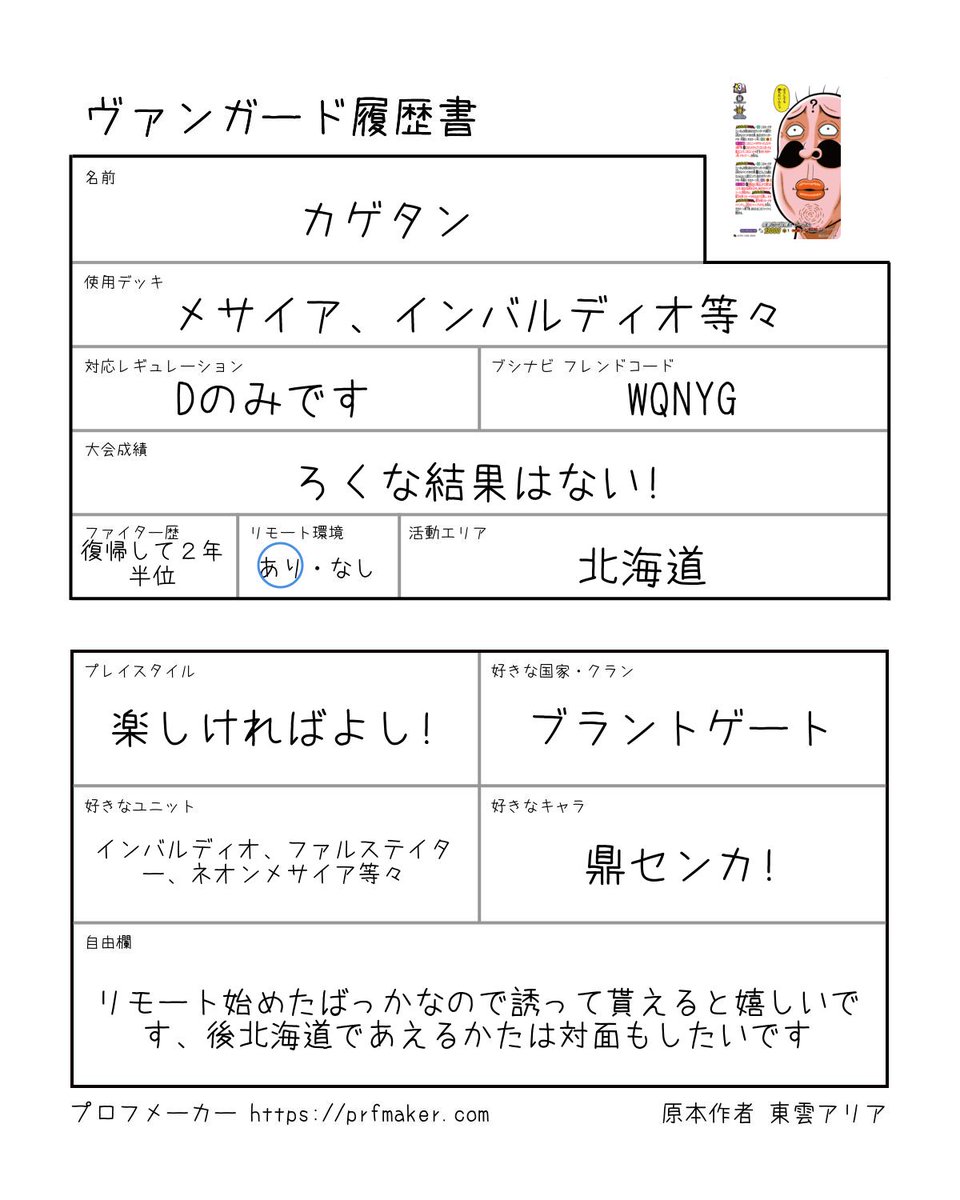 ヴァンガード履歴書
?
名前
カゲタン
使用デッキ
メサイア、インバルディオ等々
対応レギュレーション
Dのみです
ブシナビ フレンドコード
WQNYG
大会成績
ろくな結果はない!
ファイター歴
復帰して２年
半位
リモート環境
あり・なし
活動エリア
北海道
プレイスタイル
楽しければよし!
好きな国家・クラン
ブラントゲート
好きなユニット
インバルディオ、ファルステイタ
ー、ネオンメサイア等々
好きなキャラ
鼎センカ!
自由欄
リモート始めたばっかなので誘って貰えると嬉しいで
す、後北海道であえるかたは対面もしたいです
プロフメーカー https://prfmaker.com
原本作者 東雲アリア